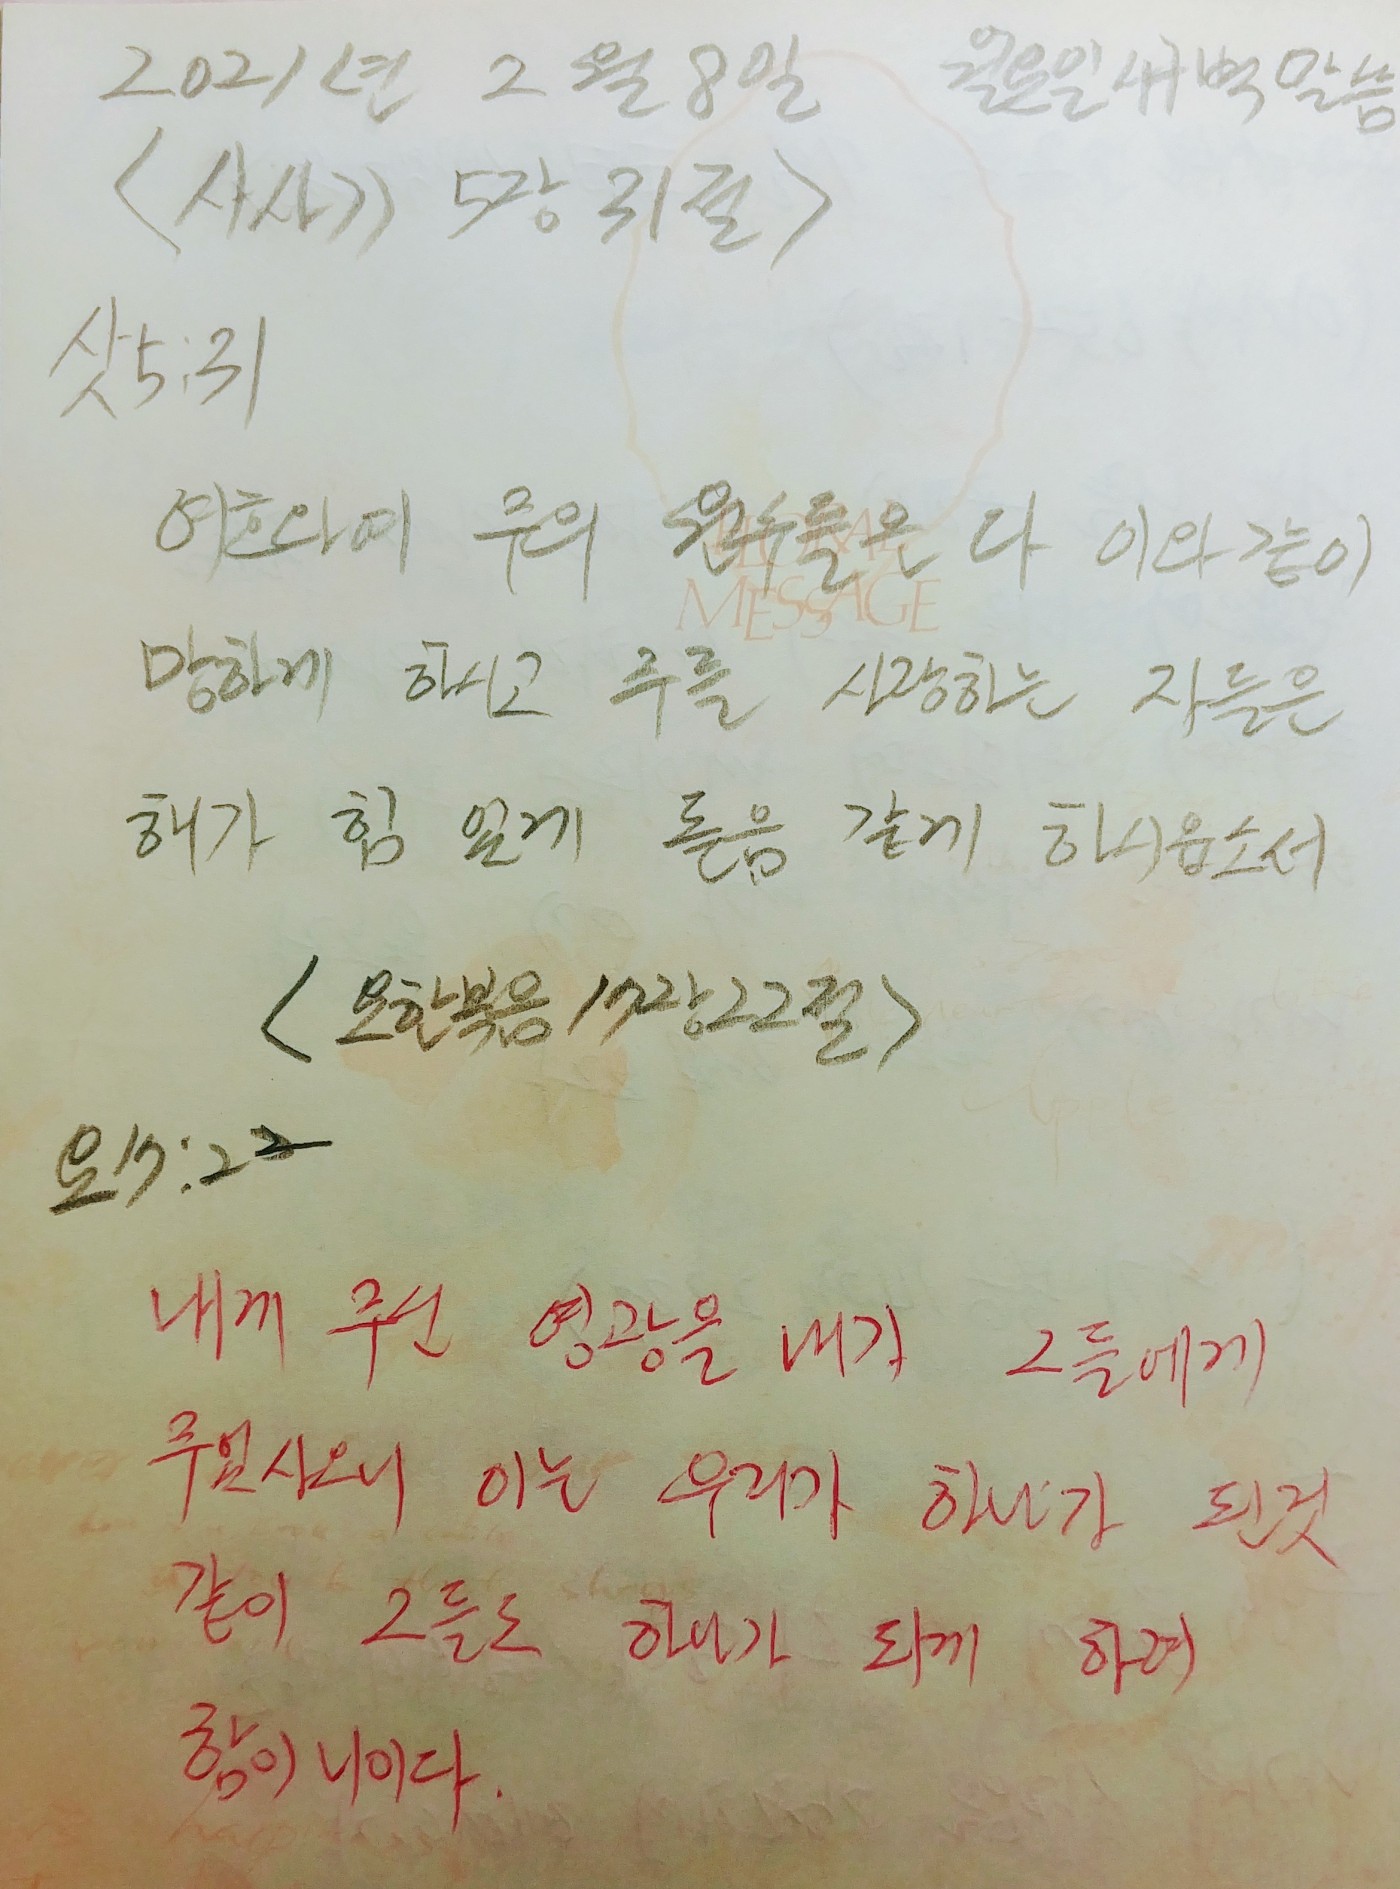 2021년 2월 8일 월요일새벽말씀
<사사기 5장 31절>
삿5:31
여호와여 주의 원수들은 다 이와같이
FLORAL
MESSAGE
망하게 하시고 주를 사랑하는 자들은
해가 힘 있게 돋음 같게 하시옵소서
<요한복음17장22절>
요17:22
내게 주신 영광을 내가 그들에게
주었사오니 이는 우리가 하나가 된것
같이 그들도 하나가 되게 하려
함이니이다.